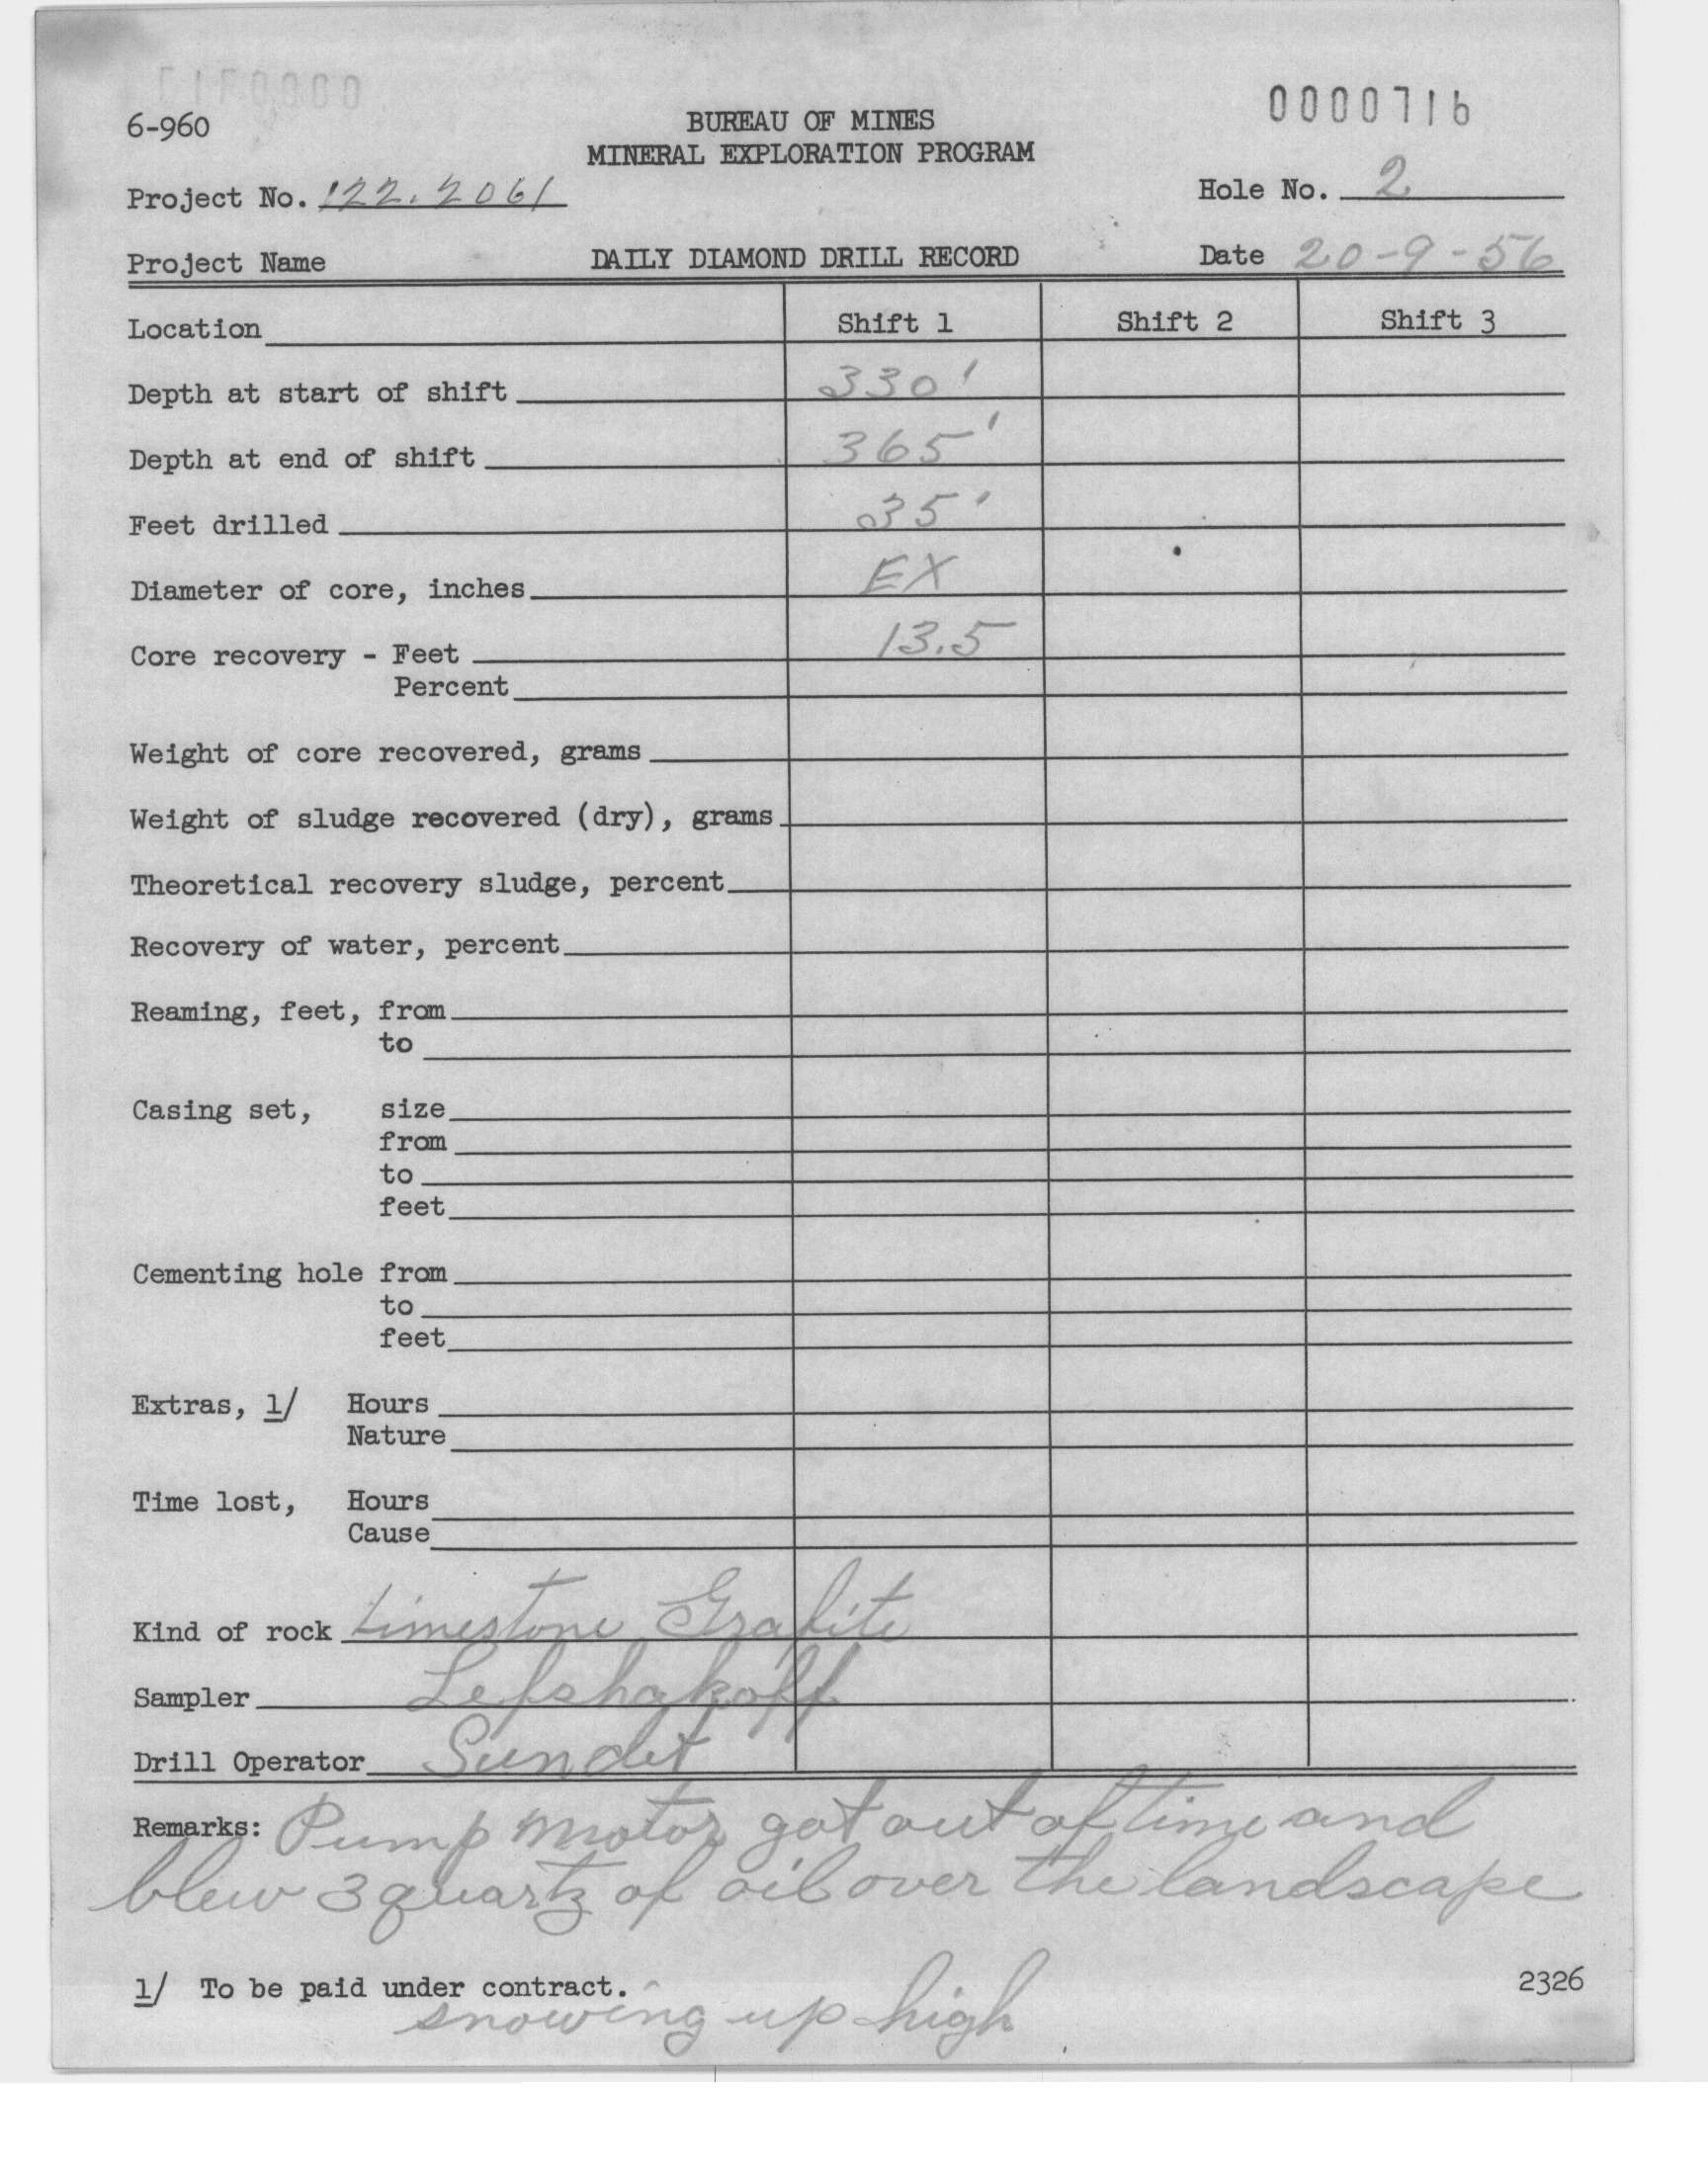 6-960
BUREAU OF MINES
0000716
MINERAL EXPLORATION PROGRAM
Project No. 122.2061
Hole No. 2
Project Name
DAILY DIAMOND DRILL RECORD
Date 20-9-56
Location Shift 1 Shift 2 Shift 3
Depth at start of shift 330'
Depth at end of shift 365'
Feet drilled 35'
Diameter of core, inches EX
Core recovery - Feet 13.5
Percent
Weight of core recovered, grams
Weight of sludge recovered (dry), grams
Theoretical recovery sludge, percent
Recovery of water, percent
Reaming, feet, from
to
Casing set, size
from
to
feet
Cementing hole from
to
feet
Extras, 1/ Hours
Nature
Time lost, Hours
Cause
Kind of rock Limestone Grafite
Sampler Lefshakoff
Drill Operator Sundit
Remarks: Pump motor got out of time and
blew 3 quartz of oil over the landscape
1/ To be paid under contract.
2326
snowing up high